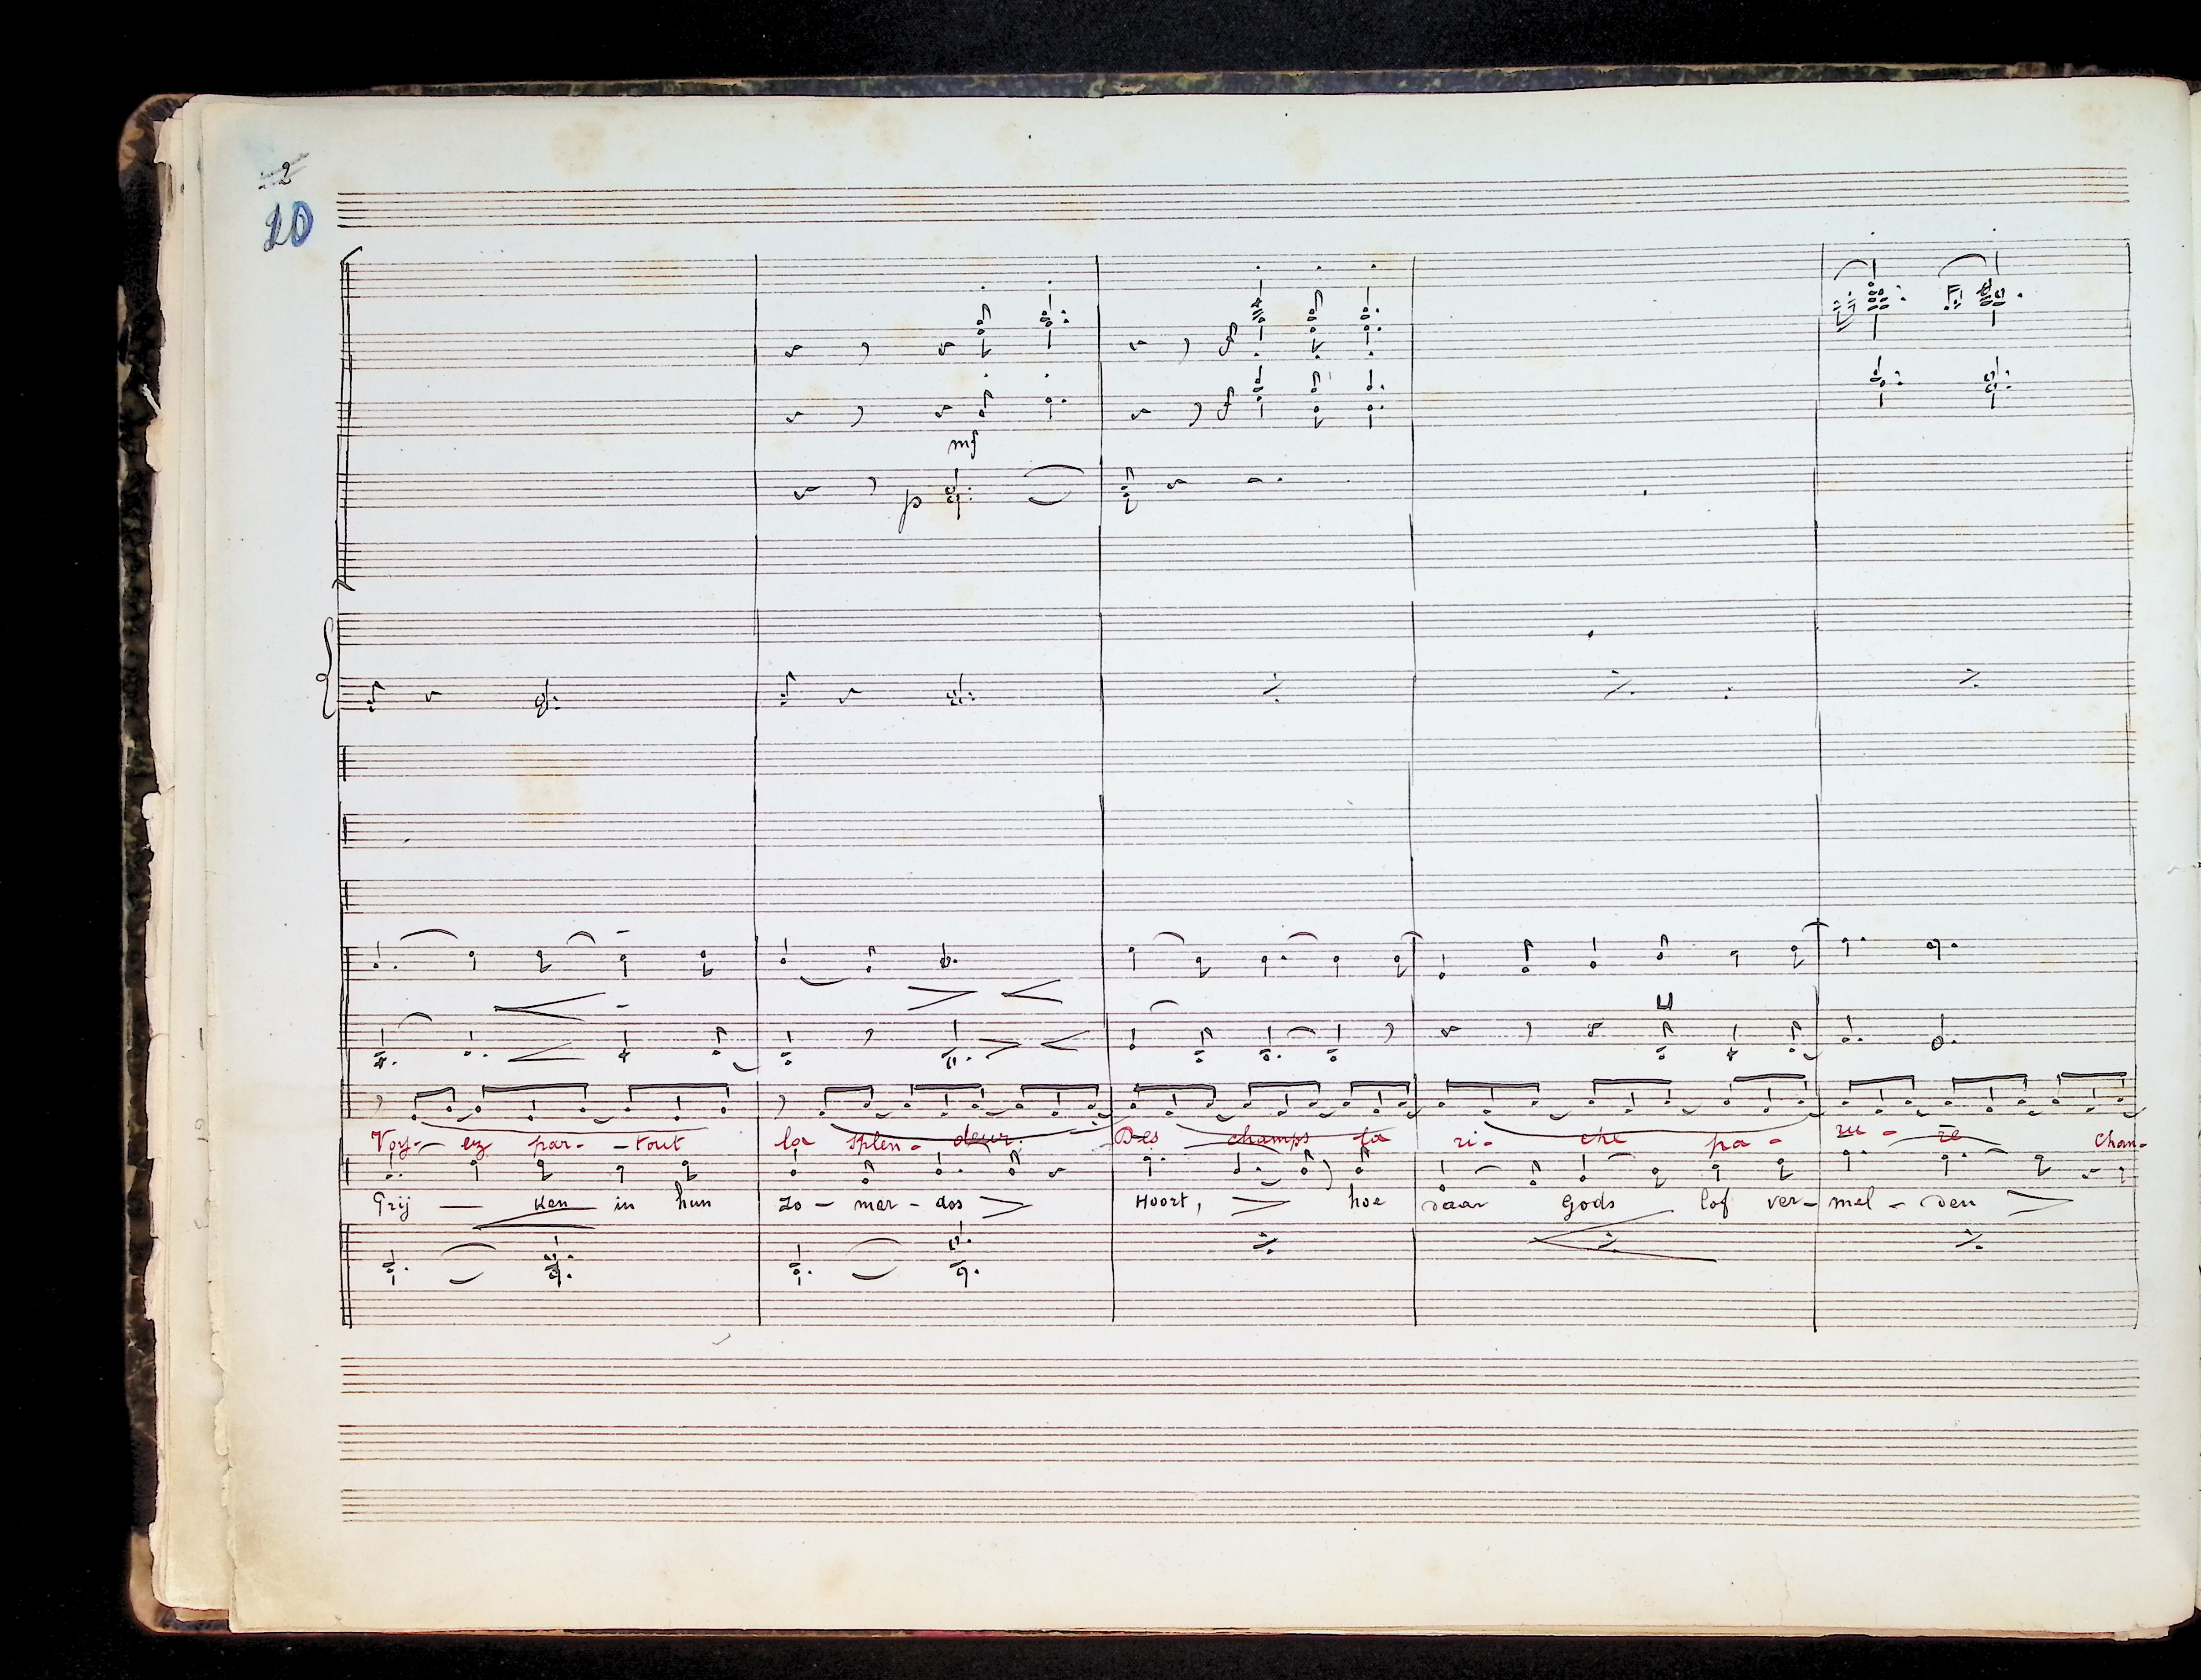 20
mf
p
Voy- ez par- -tout la splen- deur. Des champs la ri- che pa- ru- re Chan-
Grij — ken in hun zo - mer - dos Hoort, hoe daar Gods lof ver- mel - den